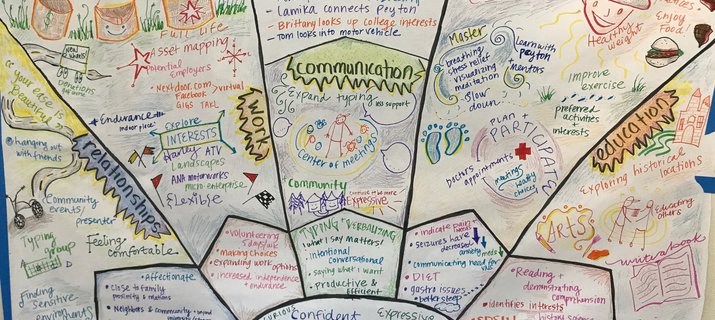 Lamika connects Peyton
Brittany looks up college interests
Tom looks into motor vehicle.
Full Life
Asset mapping
Potential
Employers
Nextdoor.com
Facebook
GIGS TAXL
Virtual
Endurance
indoor place
Explore
INTERESTS
Harley ATV
Landscapes
ANA motorworks
micro-enterprise
Flexible
Work
New Friends
Your ease is
Beautiful
hanging out
with friends
relationships
Community
events/
presenter
Typing
group
feeling
comfortable
Finding
Sensitive
environments
communication
Expand typing
Center of meetings
Community
Expressive
Master
breathing
stress relief
visualizing
meditation
Slow
down
Learn with
Peyton
+
Mentors
Plan +
PARTICIPATE
Doctors
appointments
meetings
healthy
choices
Enjoy
Food
Healthy
weight
improve
exercise
preferred
activities
interests
education
Exploring historical
locations
ARTS
Educating
others
write a book
Affectionate
Close to family
proximity & relations
Neighbors & community
Volunteering
making choices
expanding work options
increased independence
+ endurance
TYPING "VERBALIZING
what I say matters!
intentional
conversational
saying what I want
Productive &
Efficient
indicate pain
seizures have
decreased
anxiety
meds
communicating need for
DIET
gastro issues....
better sleep
Reading +
demonstrating
comprehension
identifies interests
history
Confident
Expressive